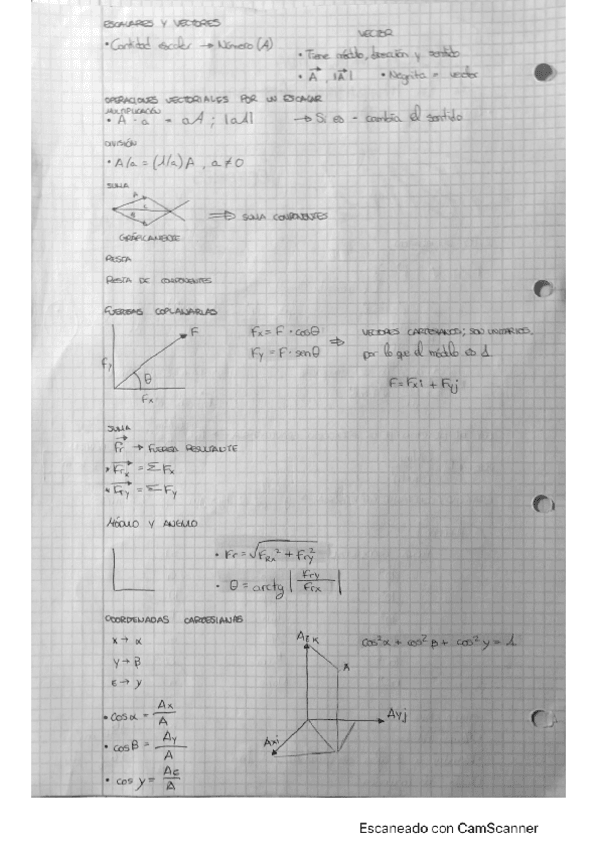 ESCALARES Y VECTORES
• Cantidad escalar → Número (A)
VECTOR
• Tiene módulo, dirección y sentido
• A⃗, |A⃗| • Negrita = vector
OPERACIONES VECTORIALES POR UN ESCALAR
MULTIPLICACIÓN
• A · a = aA ; |aA| → Si es - cambia el sentido
DIVISIÓN
• A/a = (1/a)A, a ≠ 0
SUMA
⇒ SUMA COMPONENTES
GRÁFICAMENTE
RESTA
RESTA DE COMPONENTES
FUERZAS COPLANARIAS
F
Fy
θ
Fx
Fx = F · cosθ
Fy = F · senθ
⇒ VECTORES CARTESIANOS; SON UNITARIOS,
por lo que el módulo es 1
F = Fxi + Fyj
SUMA
Fr → FUERZA RESULTANTE
• Frx = ΣFx
• Fry = ΣFy
MÓDULO Y ÁNGULO
• Fr = √(FRx² + Fry²)
• θ = arctg |Fry/Frx|
COORDENADAS CARTESIANAS
x → α
y → β
z → γ
• cosα = Ax/A
• cosβ = Ay/A
• cos γ = Az/A
Azk
A
Ayj
Axi
cos²α + cos²β + cos²γ = 1
Escaneado con CamScanner